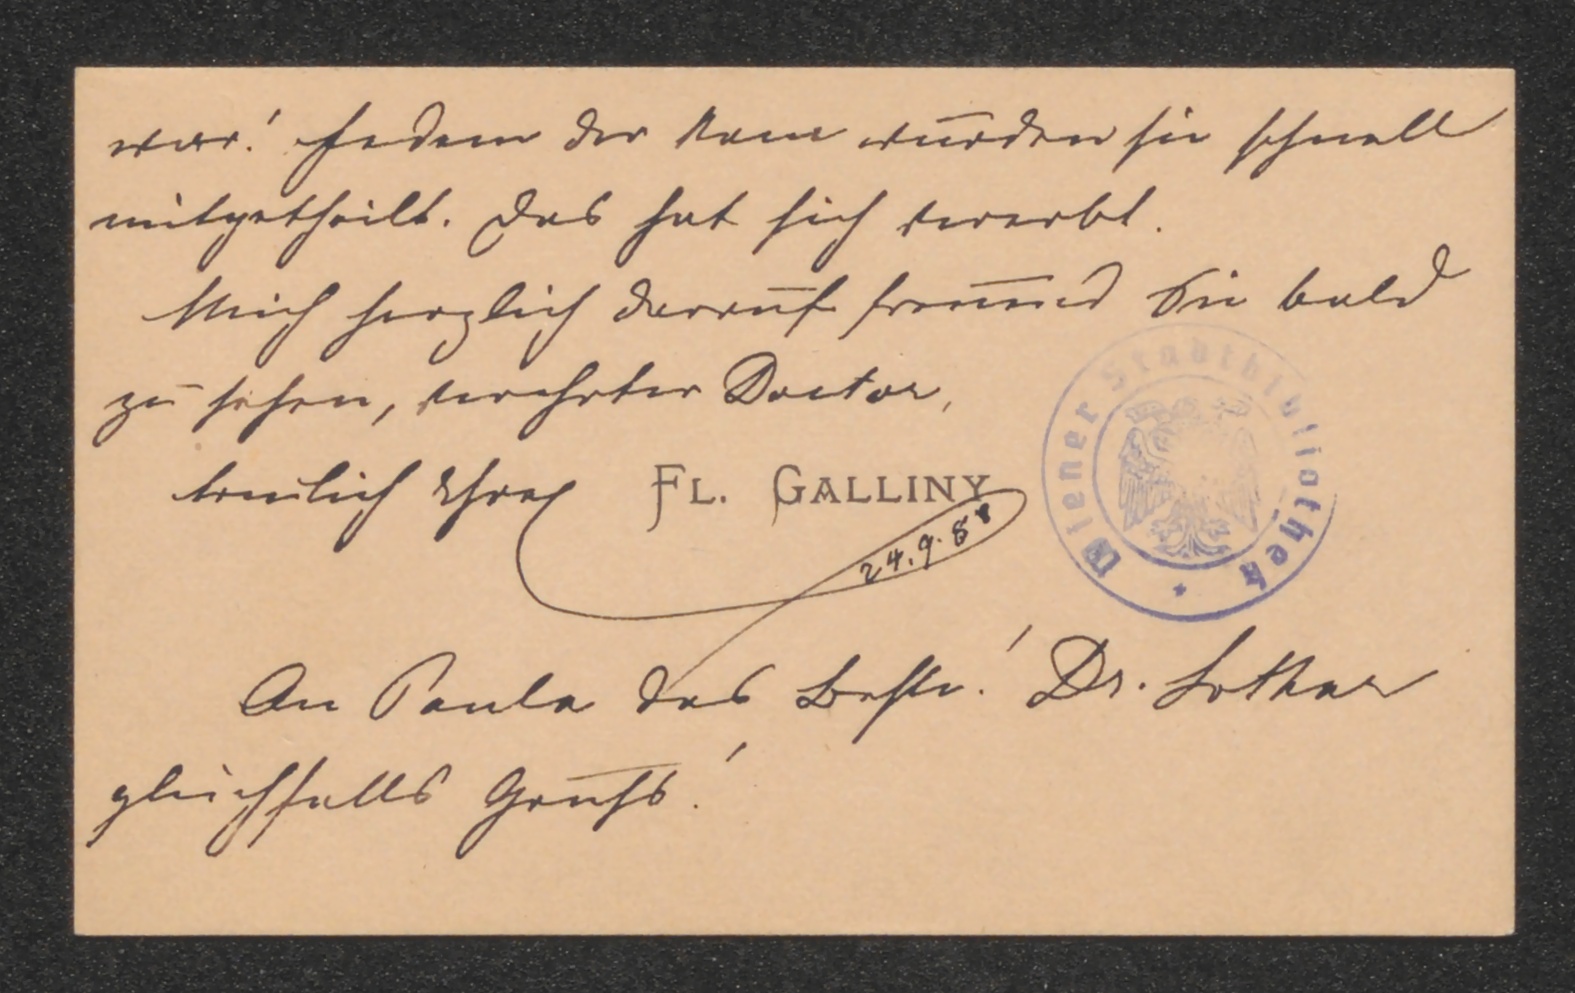 war! Jedem der kam wurden sie schnell
mitgetheilt. Das hat sich vererbt.
Mich herzlich darauf freuend Sie bald
zu sehen, verehrter Doctor,
treulich Ihre FL. GALLINY
24.9.88
Wiener Stadtbibliothek
An Paula das Beste! Dr. Lothar
gleichfalls Gruß!